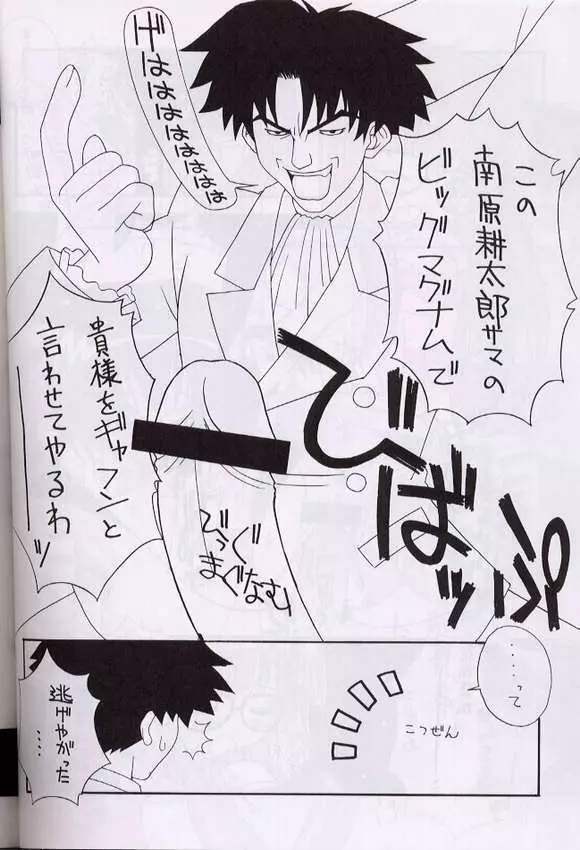 この
南原耕太郎サマの
ビッグマグナムで
げはははははははは
貴様をギャフンと
言わせてやるわーーッ
びっぐ
まぐなむ
……って
こつぜん
逃げやがった
……